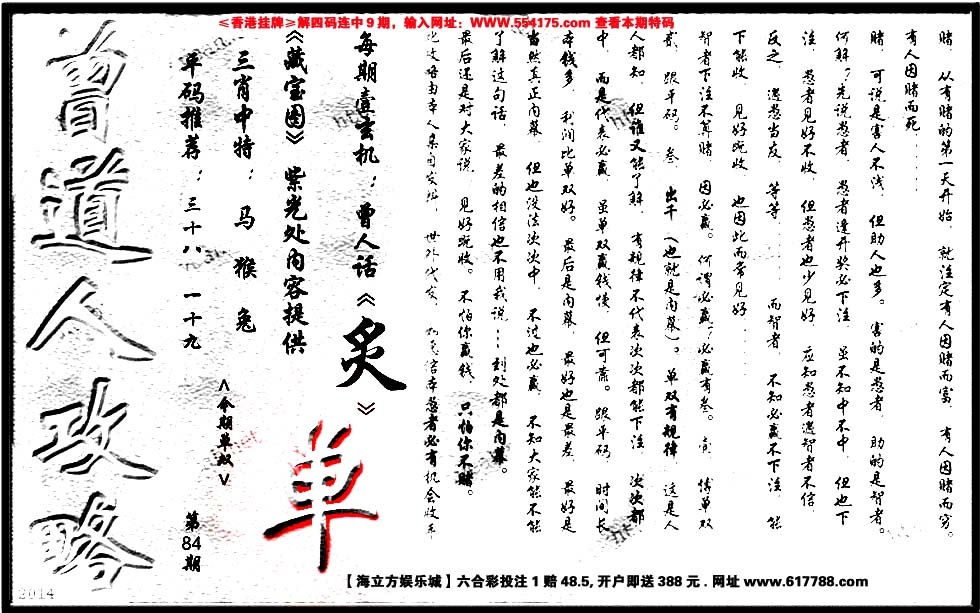 ≤香港挂牌≥解四码连中9期，输入网址：WWW.554175.com 查看本期特码
赌，从有赌的第一天开始，就注定有人因赌而富，有人因赌而穷。
有人因赌而死......
赌，可说是害人不浅，但助人也多。害的是愚者，助的是智者。
何解？先说愚者，愚者逢开奖必下注，虽不知中不中，但也下
注，愚者见好不收，但愚者也少见好，应知愚者遇智者不信，
反之，遇愚当友，等等......而智者，不知必赢不下注，能
下能收，见好就收，也因此而常见好......
智者下注不算赌，因必赢。何谓必赢？必赢有叁。壹，博单双
贰，跟平码。叁，出千（也就是内幕）。单双有规律，这是人
人都知，但谁又能了解，有规律不代表次次都能下注，次次都
中，而是代表必赢，虽单双赢钱慢，但可靠。跟平码，时间长，
本钱多，利润比单双好。最后是内幕，最好也是最差，最好是
当然真正内幕，但也没法次次中，不过也必赢，不知大家能不能
了解这句话，最差的相信也不用我说：...到处都是内幕。
最后还是对大家说，见好就收。不怕你赢钱，只怕你不赌。
每期壹玄机：曾人话《炙》
《藏宝图》紫光处内容提供
单
三肖中特：马 猴 兔
<今期单双>
平码推荐：三十八 一十九
第84期
曾道人攻略
2014
【海立方娱乐城】六合彩投注1赔48.5, 开户即送388元．网址 www.617788.com